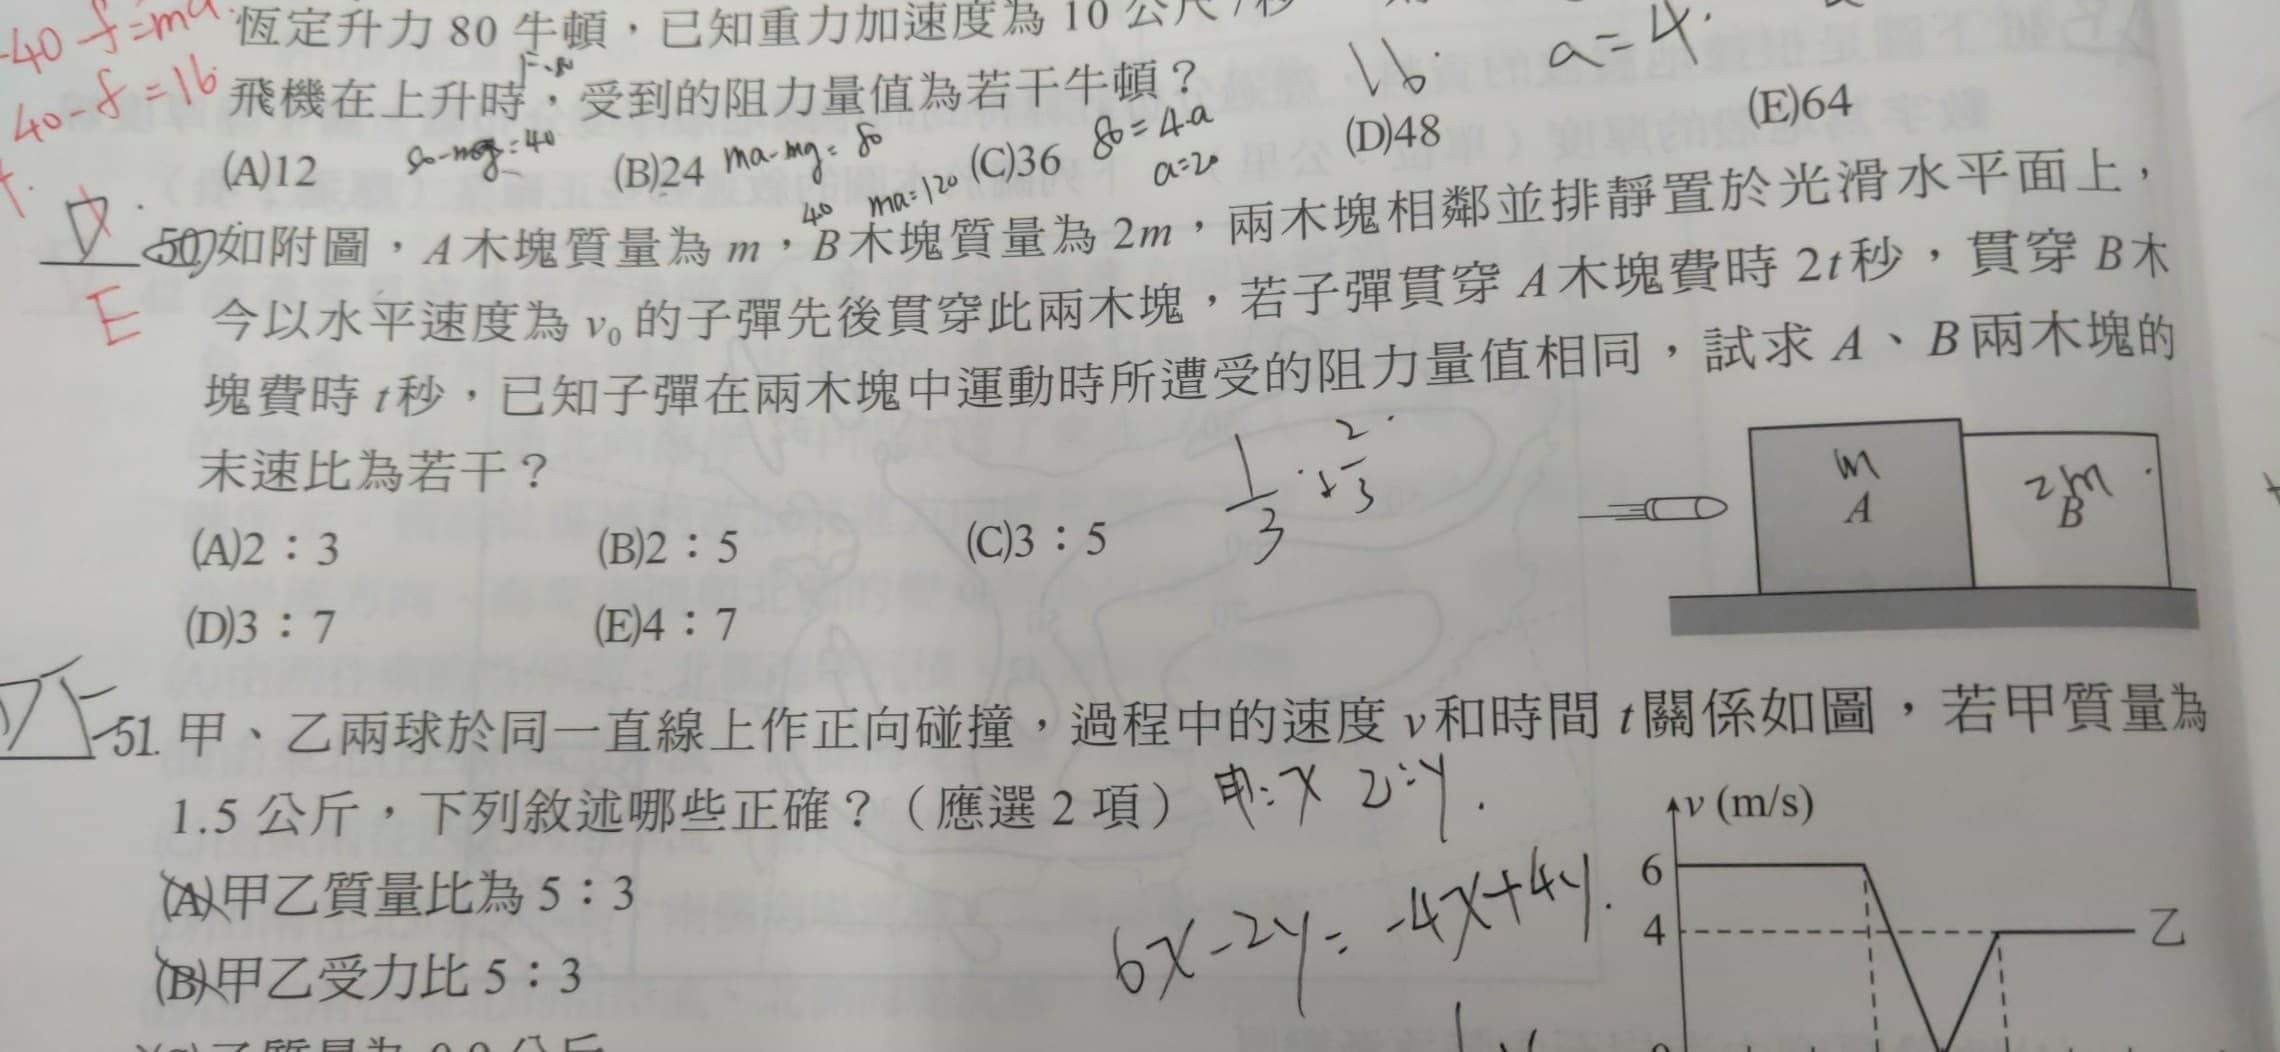 -40 -f=ma.
恆定升力 80 牛頓，已知重力加速度為 10 公尺/秒
a=4.
40-f=16
飛機在上升時，受到的阻力量值為若干牛頓？
16.
(A)12
80-mg=40
(B)24
ma-mg=80
ma=120
(C)36
80=4.a
a=20
(D)48
(E)64
40
50.如附圖，A木塊質量為 m，B木塊質量為 2m，兩木塊相鄰並排靜置於光滑水平面上，
E
今以水平速度為 v₀ 的子彈先後貫穿此兩木塊，若子彈貫穿 A木塊費時 2t秒，貫穿 B木
塊費時 t秒，已知子彈在兩木塊中運動時所遭受的阻力量值相同，試求 A、B兩木塊的
末速比為若干？
1/3
2/3
m
A
2m
B
(A)2：3
(B)2：5
(C)3：5
(D)3：7
(E)4：7
51. 甲、乙兩球於同一直線上作正向碰撞，過程中的速度 v和時間 t關係如圖，若甲質量為
1.5 公斤，下列敘述哪些正確？（應選 2 項）
甲:x 乙:y.
(A)甲乙質量比為 5：3
6x-2y=-4x+4y.
(B)甲乙受力比 5：3
v (m/s)
6
4
乙